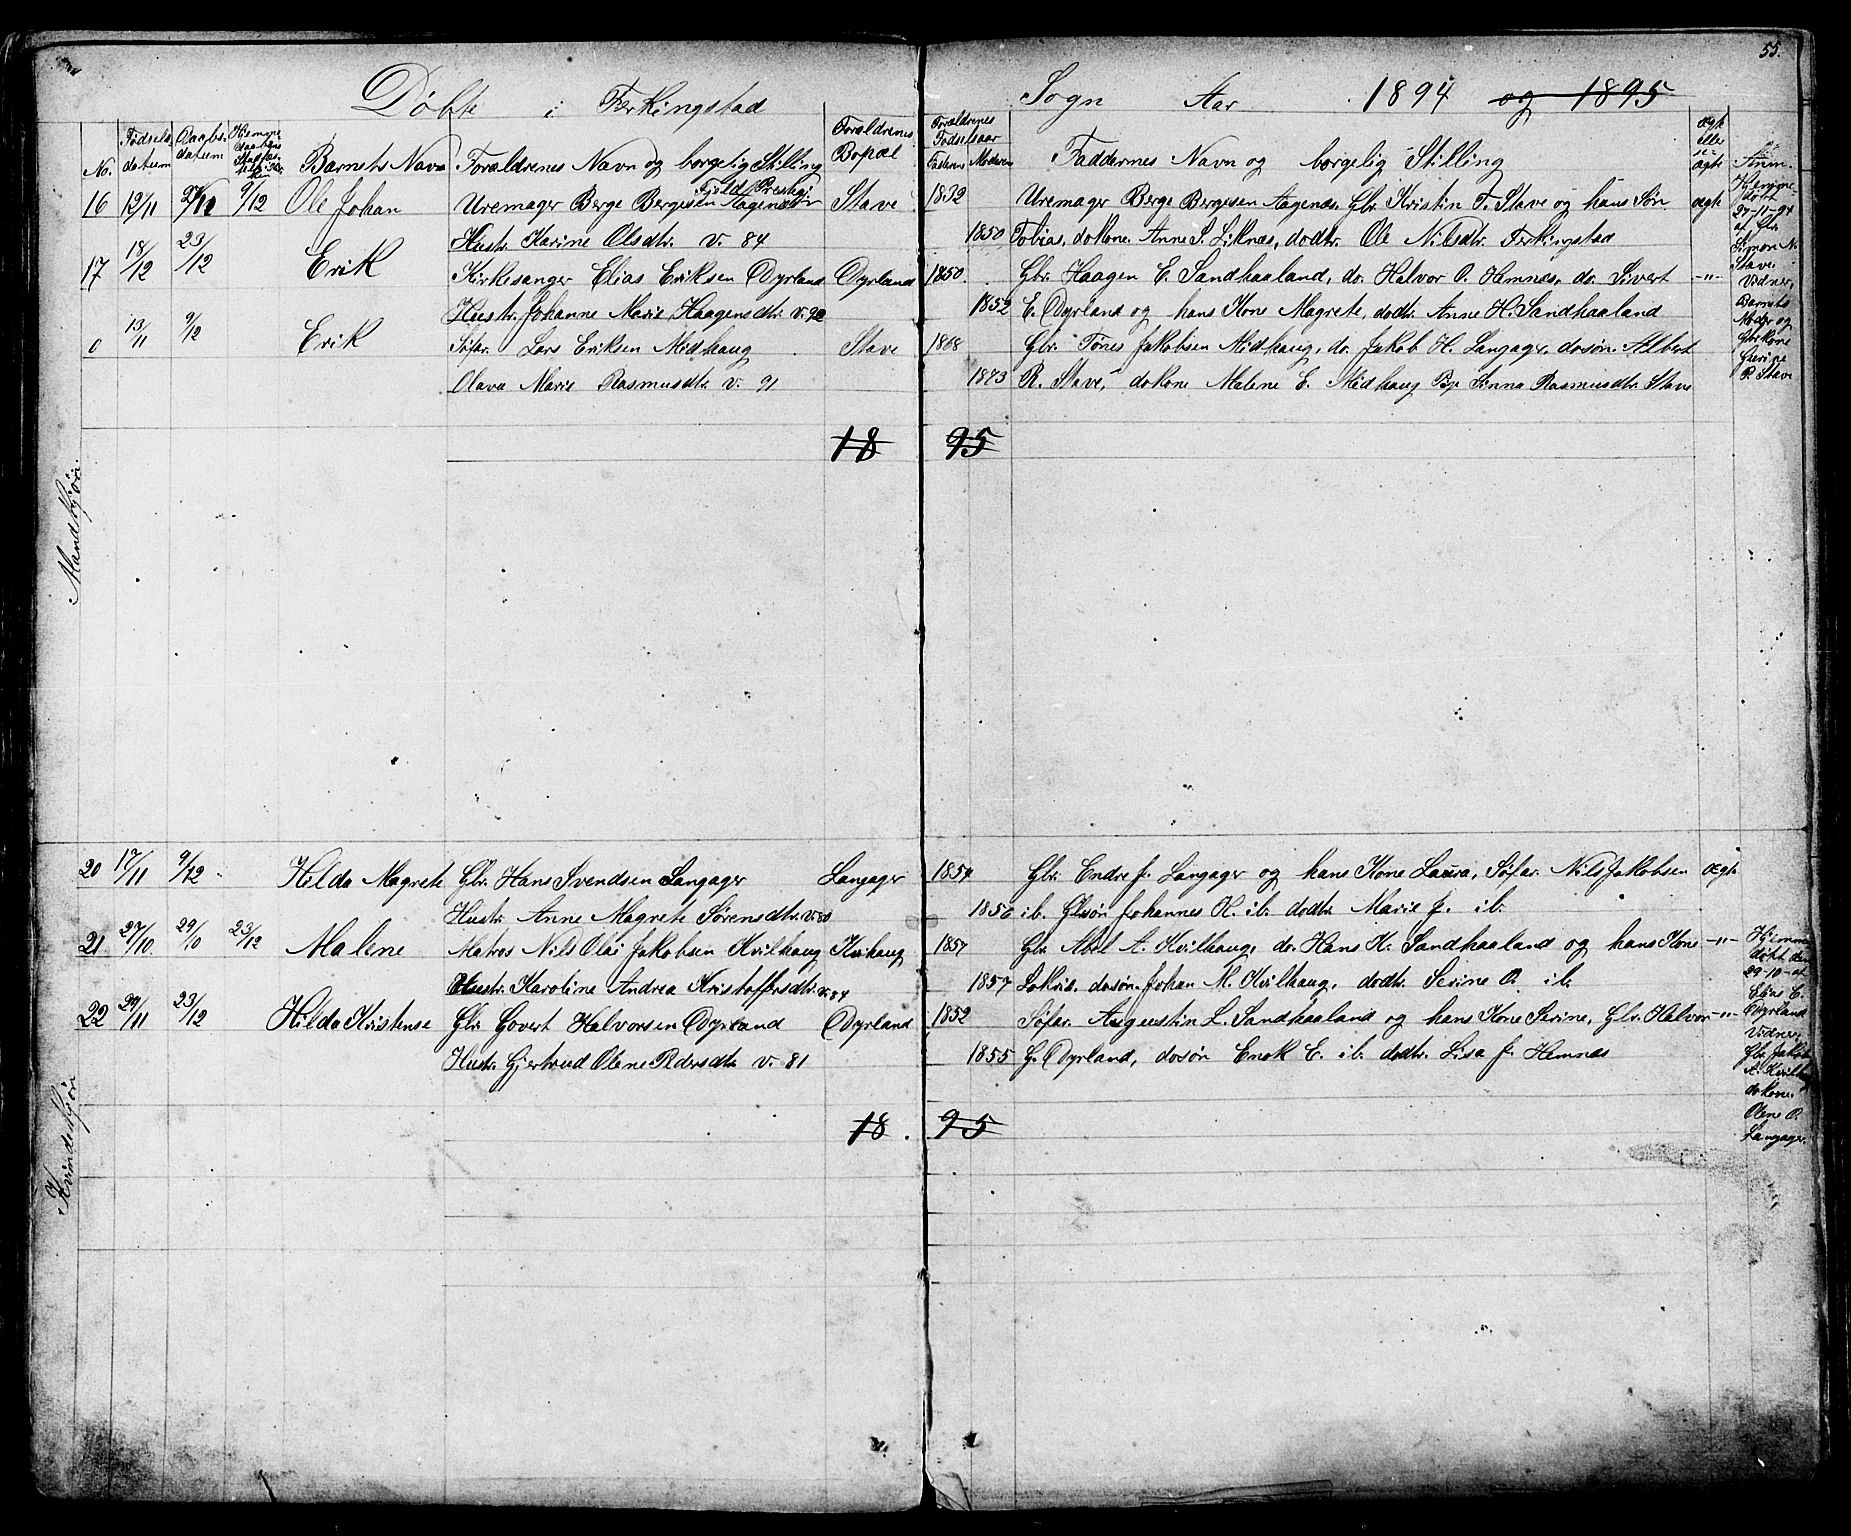 55.
Døbte i Ferkingstad Sogn Aar 1894 og 1895
No. Fødsels datum Daabs datum Hjemme Barnets Navn Forældrenes Navn og borgelig Stilling Forældrenes Bopæl Forældrenes Fødselsaar Faderns Moderen Faddernes Navn og borgelig Stilling ægte eller ægte Anm.
Mandkjøn.
16 12/11 9/12 Ole Johan Uremager Berge Bergesen Aagenæs Stave 1832 Uremager Berge Bergesen Aagenæs, Gbr. Kristin T. Stave og hans Søn ægte
Hustr. Karine Olsdtr. v. 84 1850 Tobias, do kone. Anne S. Liknæs, dodtr. Ole Nilsdtr. Ferkingstad
17 18/12 23/12 Erik Kirkesanger Elias Eriksen Dyrland Dyrland 1850. Gbr. Haagen E. Sandhaaland, do. Halvor O. Hemnæs, do. Sivert -"-
Hustr. Johanne Marie Haagensdtr. v. 92 1852 E. Dyrland og hans Kone Magrete, dodtr. Anne H. Sandhaaland
0 13/11 9/12 Erik Søfar. Lars Eriksen Midhaug Stave 1868 Gbr. Tønes Jakobsen Midhaug, do. Jakob H. Langager, dosøn. Albert
Olava Marie Rasmusdtr. v. 91 1873 R. Stave, do kone Malene E. Midhaug Pg. Sinna Rasmusdtr. Stave
Hjemmedøbt
27-11-94
af Gbr.
Simon N.
Stave.
Vidner,
Barnets
Moder og
Gbrkone
Gurine
P. Stave
18 95
Kvindekjøn
20 17/11 9/12 Hilda Magrete Gbr. Hans Svendsen Langager Langager 1854 Gbr. Endre J. Langager og hans Kone Laura, Søfar. Nils Jakobsen ægt.
Hustr. Anne Magrete Sørensdtr. v. 80 1856 ib. Gbrsøn Johannes H. ib. dodtr. Marie J. ib.
21. 27/10. 29/10 23/12 Malene Matros Nils Olai Jakobsen Kvilhaug Kvihaug 1857 Gbr. Abel A. Kvilhaug, do. Hans K. Sandhaaland og hans Kone -"-
Hustr. Karoline Andrea Kristoffersdtr. v. 84 1857 Lovise. dosøn. Johan M. Kvilhaug, dodtr. Serine O. ib.
22 29/11 23/12 Hilda Kristense Gbr. Govert Halvorsen Dyrland Dyrland 1852 Søfar. Augustin L. Sandhaaland og hans Kone Serine, Gbr. Halvor -"-
Hustr. Gjertrud Olene Pedersdtr. v. 81 1855 G. Dyrland, dosøn Enok E. ib. dodtr. Lisa J. Hemnæs
Hjemme
døbt den
29-10- af
Elias E.
Dyrland
Vidner,
Gbr. Jakob
A. Kvilhaug
do kone.
Olene O.
Langager.
18. 95